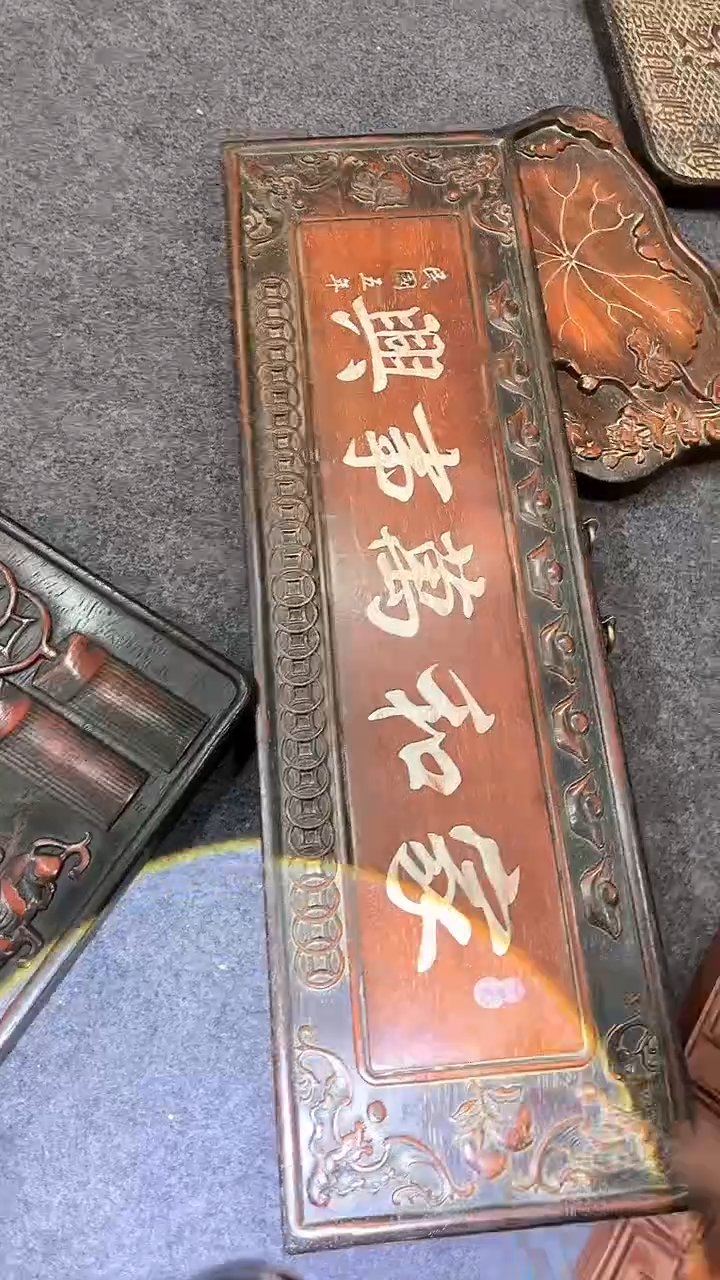 家和萬事興
民國五年